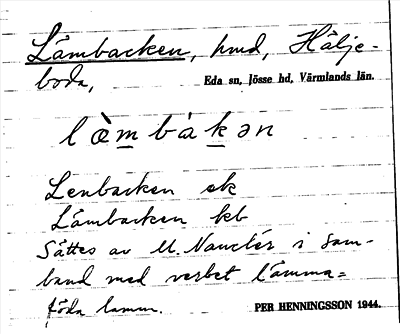 Lämbacken, hmd, Hälje-
boda, Eda sn, Jösse hd, Värmlands län.
l ὰ m b à k ə n
Lenbacken ek
Lämbacken kb
Sättes av M. Nauclér i sam-
band med verbet lämma=
föda lamm. PER HENNINGSSON 1944.